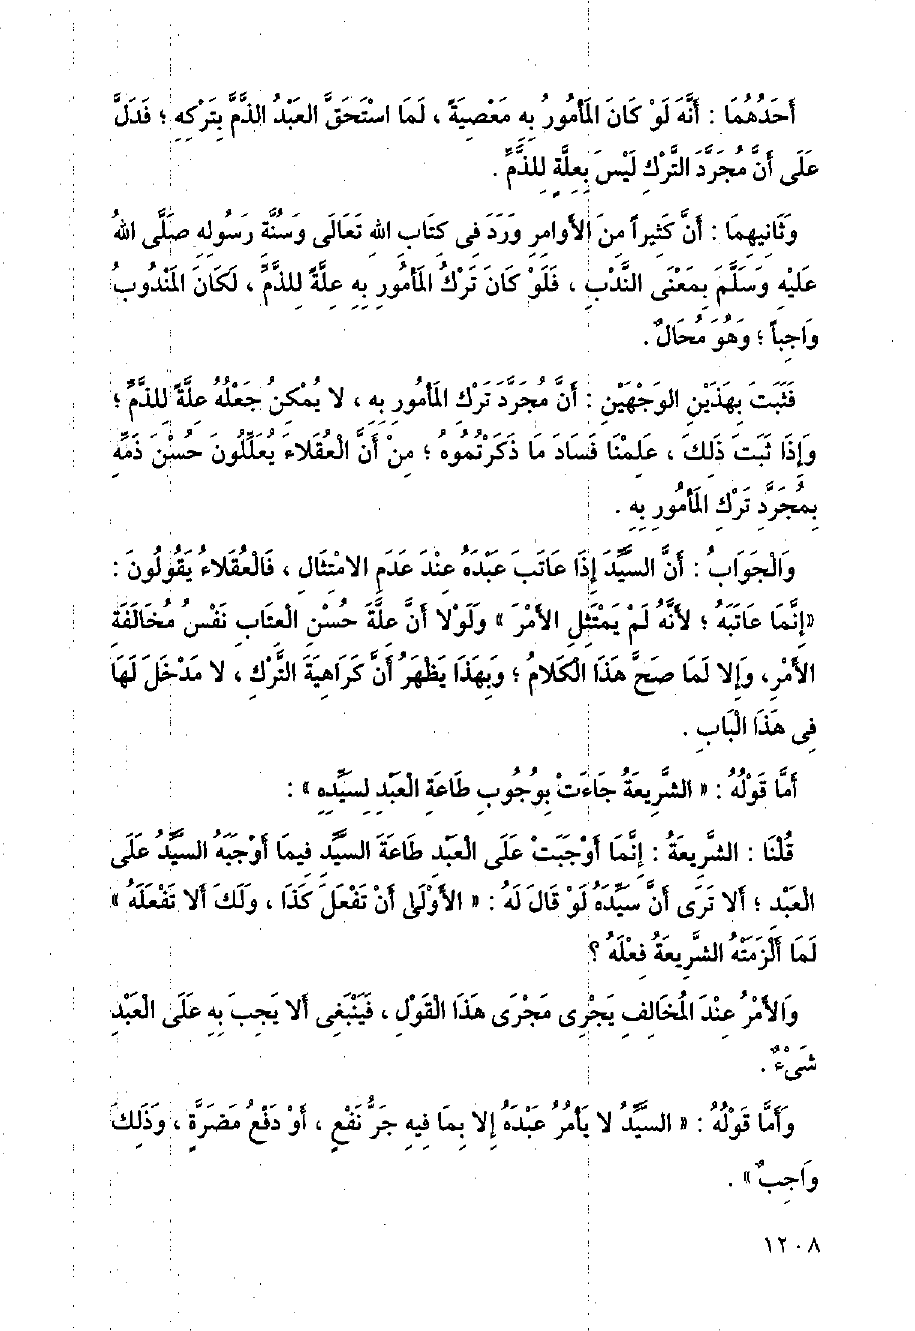 أَحَدُهُمَا : أَنَّهُ لَوْ كَانَ المَأْمُورُ بِهِ مَعْصِيَةً ، لَمَا اسْتَحَقَّ العَبْدُ الذَّمَّ بِتَرْكِهِ ؛ فَدَلَّ
عَلَى أَنَّ مُجَرَّدَ التَّرْكِ لَيْسَ بِعِلَّةٍ لِلذَّمِّ .
وَثَانِيهِمَا : أَنَّ كَثِيراً مِنَ الأَوامِرِ وَرَدَ فِى كِتَابِ اللهِ تَعَالَى وَسُنَّةِ رَسُولِهِ صَلَّى اللهُ
عَلَيْهِ وَسَلَّمَ بِمَعْنَى النَّدْبِ ، فَلَوْ كَانَ تَرْكُ المَأْمُورِ بِهِ عِلَّةً لِلذَّمِّ ، لَكَانَ المَنْدُوبُ
وَاجِباً ؛ وَهُوَ مُحَالٌ .
فَثَبَتَ بِهَذَيْنِ الوَجْهَيْنِ : أَنَّ مُجَرَّدَ تَرْكِ المَأْمُورِ بِهِ ، لا يُمْكِنُ جَعْلُهُ عِلَّةً لِلذَّمِّ ؛
وَإِذَا ثَبَتَ ذَلِكَ ، عَلِمْنَا فَسَادَ مَا ذَكَرْتُمُوهُ ؛ مِنْ أَنَّ الْعُقَلاءَ يُعَلِّلُونَ حُسْنَ ذَمِّهِ
بِمُجَرَّدِ تَرْكِ المَأْمُورِ بِهِ .
وَالْجَوَابُ : أَنَّ السَّيِّدَ إِذَا عَاتَبَ عَبْدَهُ عِنْدَ عَدَمِ الامْتِثَالِ ، فَالْعُقَلاءُ يَقُولُونَ :
«إِنَّمَا عَاتَبَهُ ؛ لأَنَّهُ لَمْ يَمْتَثِلِ الأَمْرَ » وَلَوْلا أَنَّ عِلَّةَ حُسْنِ الْعِتَابِ نَفْسُ مُخَالَفَةِ
الأَمْرِ، وَإِلا لَمَا صَحَّ هَذَا الْكَلامُ ؛ وَبِهَذَا يَظْهَرُ أَنَّ كَرَاهِيَةَ التَّرْكِ ، لا مَدْخَلَ لَهَا
فِى هَذَا الْبَابِ .
أَمَّا قَوْلُهُ : « الشَّرِيعَةُ جَاءَتْ بِوُجُوبِ طَاعَةِ الْعَبْدِ لِسَيِّدِهِ » :
قُلْنَا : الشَّرِيعَةُ : إِنَّمَا أَوْجَبَتْ عَلَى الْعَبْدِ طَاعَةَ السَّيِّدِ فِيمَا أَوْجَبَهُ السَّيِّدُ عَلَى
الْعَبْدِ ؛ أَلا تَرَى أَنَّ سَيِّدَهُ لَوْ قَالَ لَهُ : « الأَوْلَى أَنْ تَفْعَلَ كَذَا ، وَلَكَ أَلا تَفْعَلَهُ »
لَمَا أَلْزَمَتْهُ الشَّرِيعَةُ فِعْلَهُ ؟
وَالأَمْرُ عِنْدَ الْمُخَالِفِ يَجْرِى مَجْرَى هَذَا الْقَوْلِ ، فَيَنْبَغِى أَلا يَجِبَ بِهِ عَلَى الْعَبْدِ
شَىْءٌ .
وَأَمَّا قَوْلُهُ : « السَّيِّدُ لا يَأْمُرُ عَبْدَهُ إِلا بِمَا فِيهِ جَرُّ نَفْعٍ ، أَوْ دَفْعُ مَضَرَّةٍ ، وَذَلِكَ
وَاجِبٌ » .
١٢٠٨